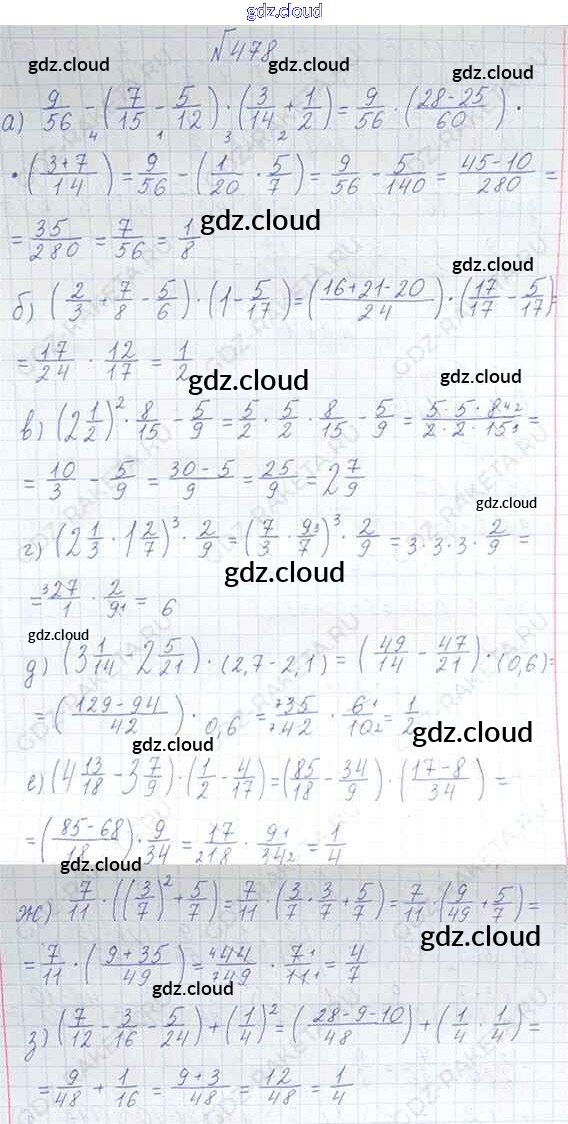 gdz.cloud
№478
gdz.cloud gdz.cloud
а) 9/56 - (7/15 - 5/12) · (3/14 + 1/2) = 9/56 · (28-25/60) ·
4 1 3 2
· (3+7/14) = 9/56 - (1/20 · 5/7) = 9/56 - 5/140 = 45-10/280 =
= 35/280 = 7/56 = 1/8
gdz.cloud gdz.cloud
б) (2/3 + 7/8 - 5/6) · (1 - 5/17) = (16+21-20/24) · (17/17 - 5/17) =
= 17/24 · 12/17 = 1/2
gdz.cloud
в) (2 1/2)² · 8/15 - 5/9 = 5/2 · 5/2 · 8/15 - 5/9 = 5·5·8/2·2·15 =
= 10/3 - 5/9 = 30-5/9 = 25/9 = 2 7/9
gdz.cloud
г) (2 1/3 · 1 2/7)³ · 2/9 = (7/3 · 9/7)³ · 2/9 = 3·3·3· 2/9 =
= 27/1 · 2/9 = 6
gdz.cloud
gdz.cloud
д) (3 1/14 - 2 5/21) · (2,7-2,1) = (49/14 - 47/21) · (0,6) =
= (129-94/42) · 0,6 = 35/42 · 6/10 = 1/2
gdz.cloud
gdz.cloud
е) (4 13/18 - 3 7/9) · (1/2 - 4/17) = (85/18 - 34/9) · (17-8/34) =
= (85-68/18) · 9/34 = 17/18 · 9/34 = 1/4
gdz.cloud
ж) 7/11 · ((3/7)² + 5/7) = 7/11 · (3/7 · 3/7 + 5/7) = 7/11 · (9/49 + 5/7) =
gdz.cloud
= 7/11 · (9+35/49) = 44/49 · 7/11 = 4/7
gdz.cloud
з) (7/12 - 3/16 - 5/24) + (1/4)² = (28-9-10/48) + (1/4 · 1/4) =
= 9/48 + 1/16 = 9+3/48 = 12/48 = 1/4
gdz.cloud
GDZ-RAKETA.RU